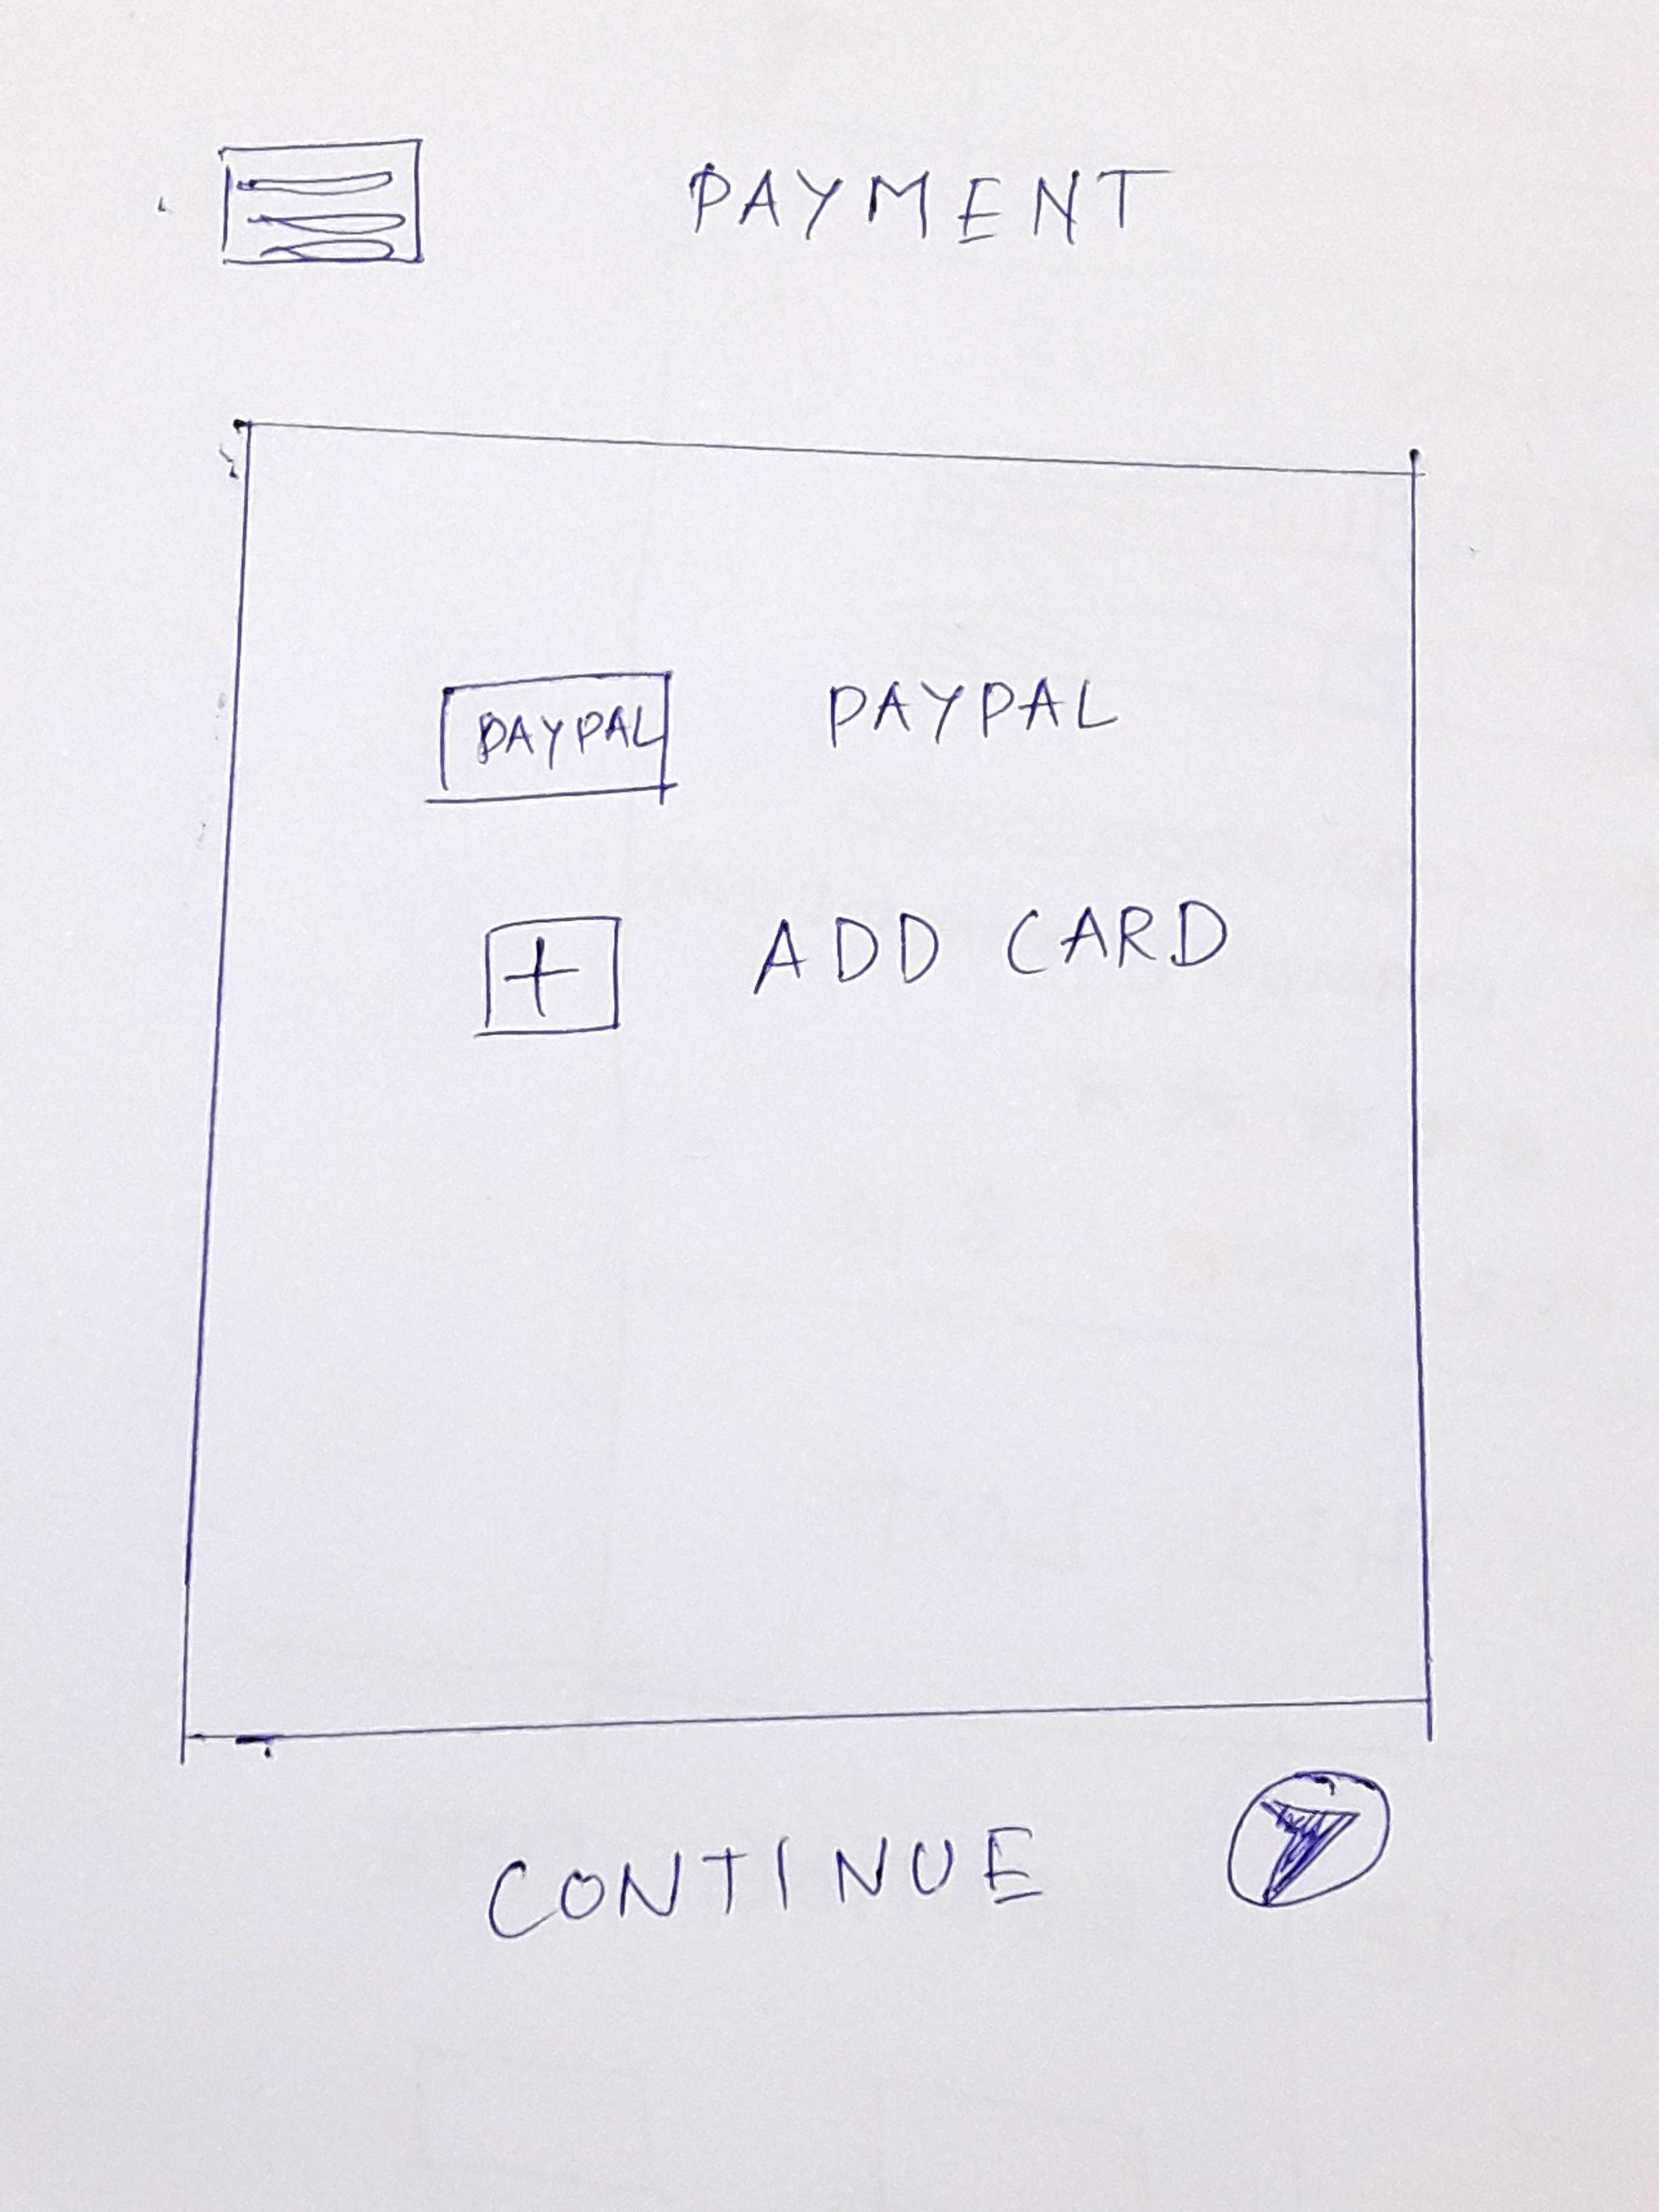 PAYMENT
PAYPAL PAYPAL
+ ADD CARD
CONTINUE